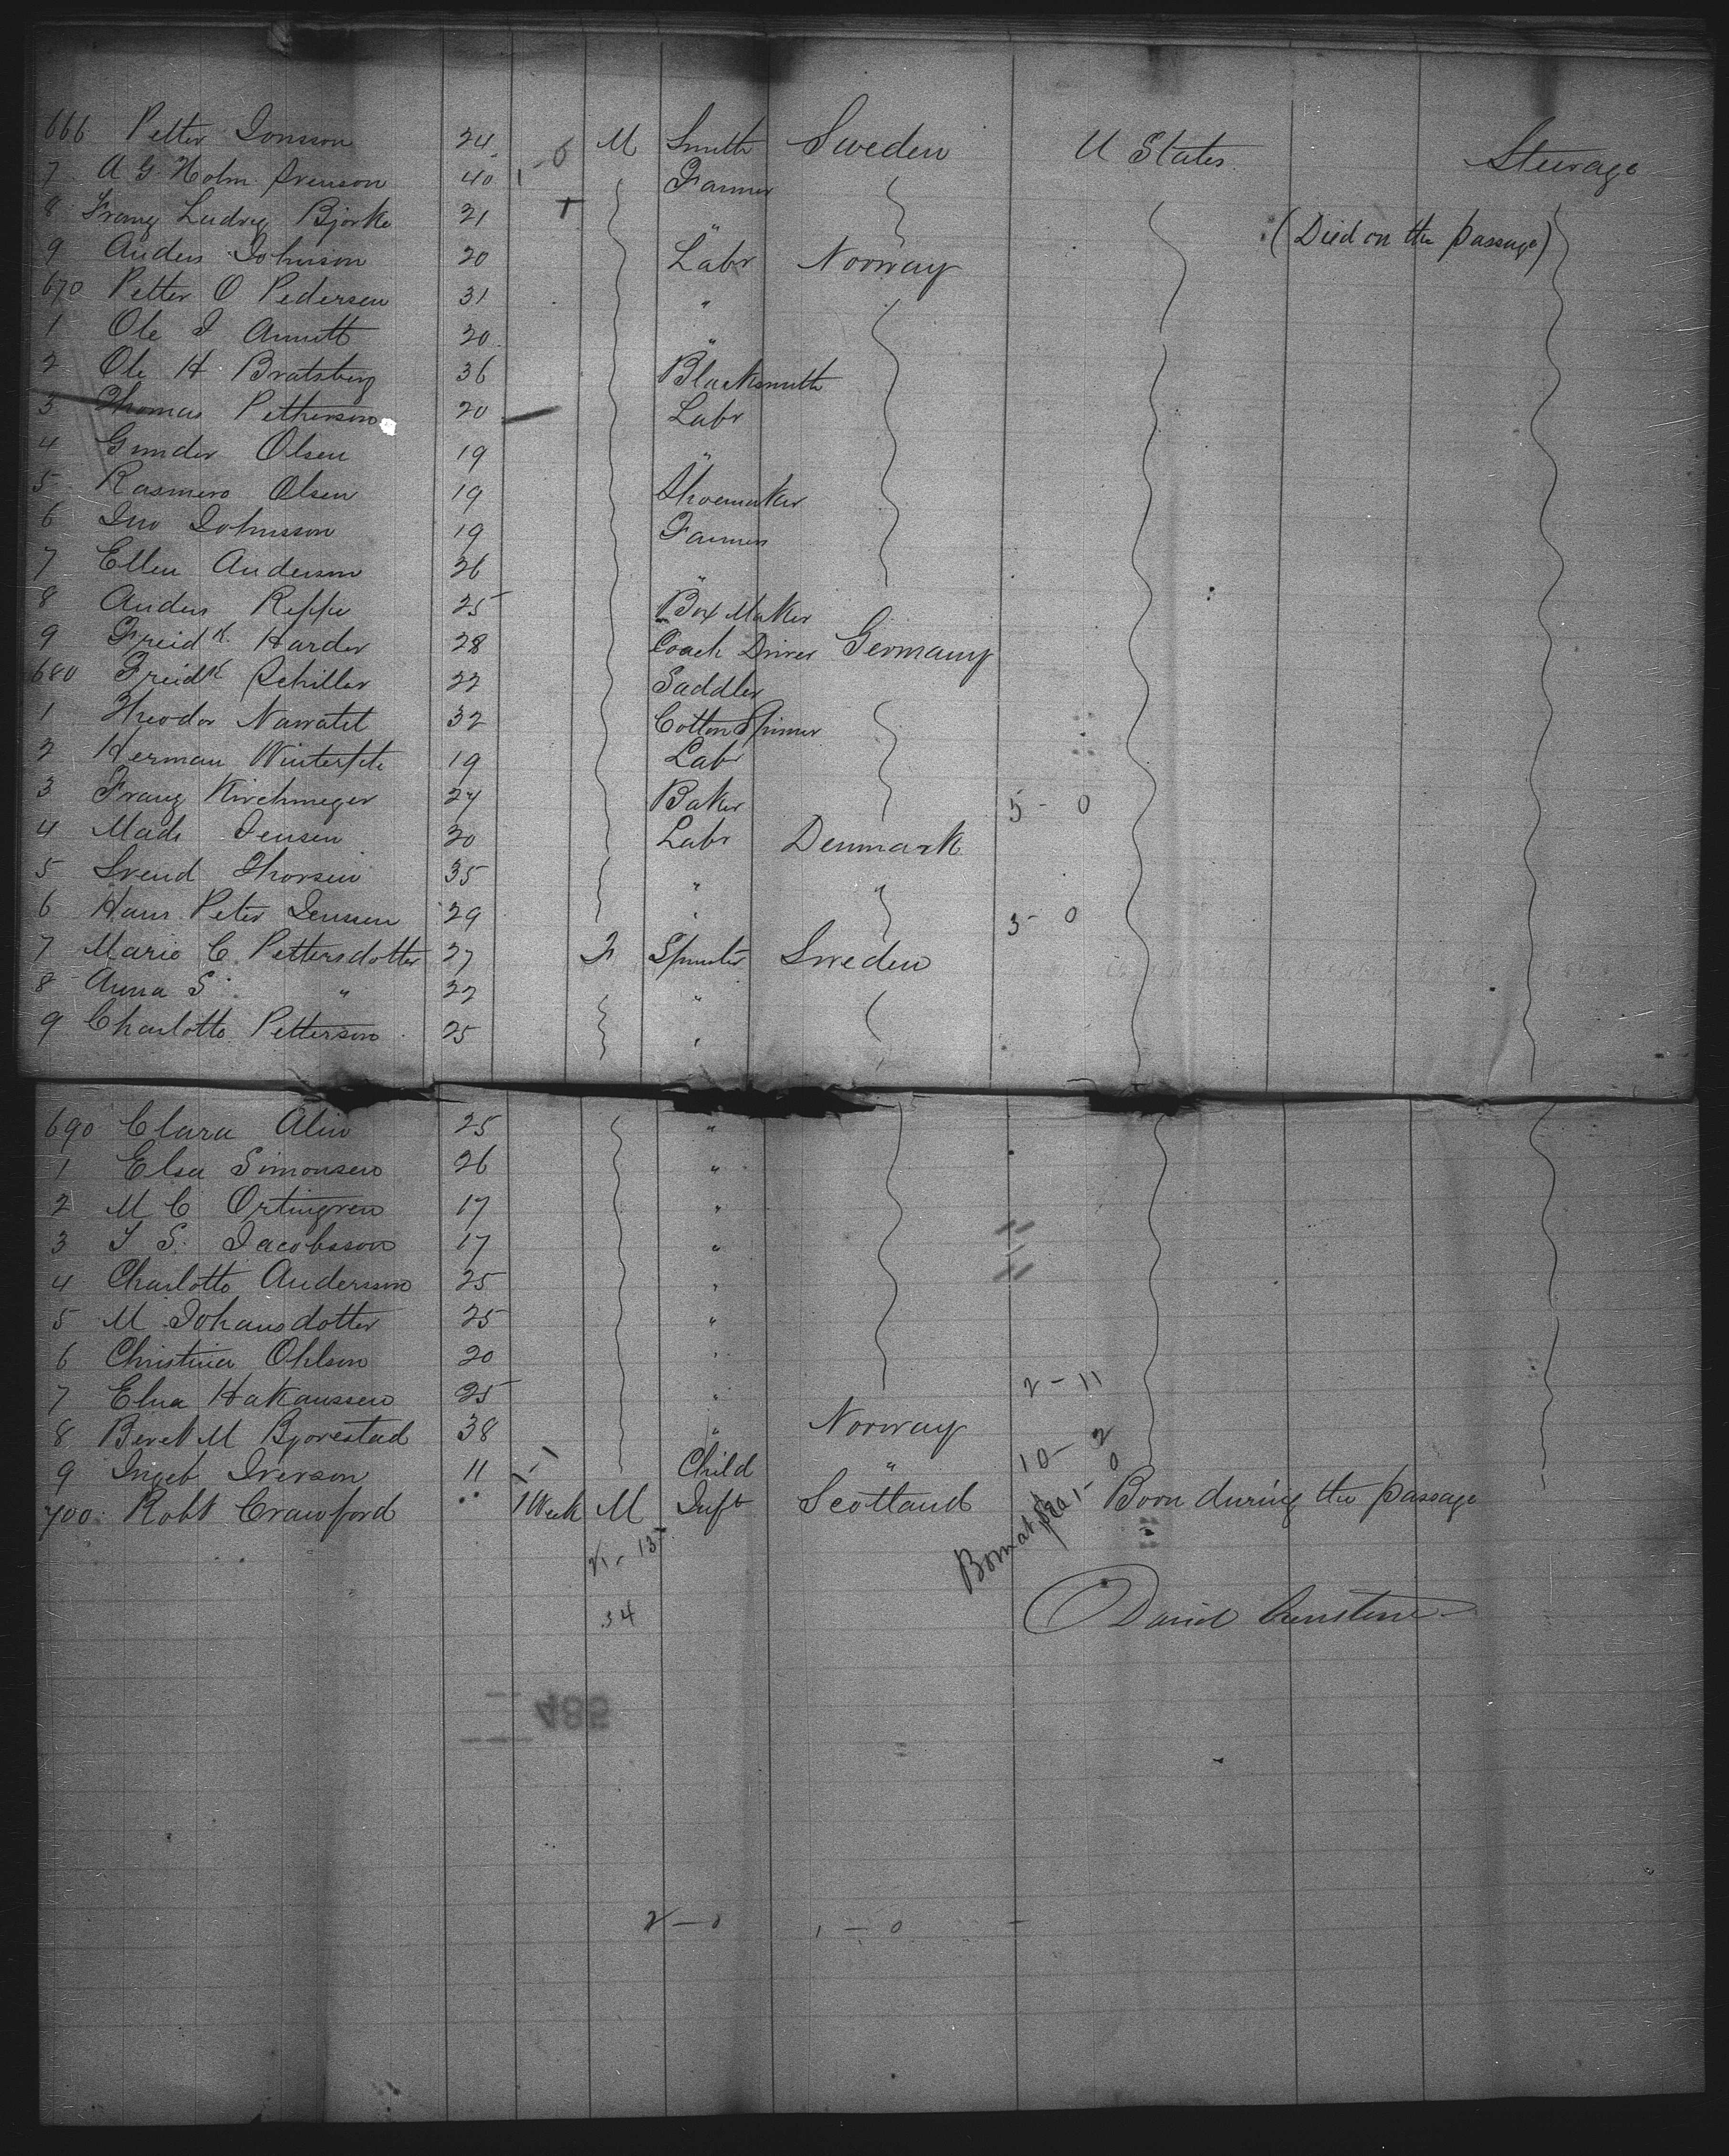 666 Petter Jonsson 24 M Smith Sweden U States Steerage
7 A G Holm Svenson 40 Farmer
8 Franz Ludvig Bjorke 21 " (Died on the passage)
9 Anders Johnson 20 Labr Norway
670 Petter O Pedersen 31 "
1 Ole J Annett 20 "
2 Ole H Bratsberg 36 Blacksmith
3 Thomas Petherson 20 Labr
4 Gunder Olsen 19 "
5 Rasmus Olsen 19 Shoemaker
6 Ino Johnsson 19 Farmer
7 Ellen Anderson 26 "
8 Anders Reppe 25 Box Maker
9 Freidk Harder 28 Coach Driver Germany
680 Freidk Schiller 22 Saddler
1 Theodor Navratil 32 Cotton Spinner
2 Herman 19 Labr
3 Franz Kirchmeger 24 Baker 5 - 0
4 Mads Jensen 20 Labr Denmark
5 Svend Thorsen 35 " "
6 Hans Peter Jenssen 29 " 3 - 0
7 Marie C Pettersdotter 27 F Spinster Sweden
8 Anna S " 22 "
9 Charlotte Petterson 25 "
690 Clara Alin 25 "
1 Elsa Simonsen 26 "
2 M C Ortingren 17 "
3 J S Jacobsson 17 "
4 Charlotte Andersson 25 "
5 M Johansdotter 25 "
6 Christina Ohlson 20 "
7 Elna Hakanssen 25 " 2 - 11
8 Beret M Bjorestad 38 " Norway 10 - 2
9 Ingeb Iverson 11 Child " 1 - 0
700 Robt Crawford 1 Week M Inft Scotland Born at Sea Born during the passage
21 - 13
34
David
485
2 - 0 1 - 0 -